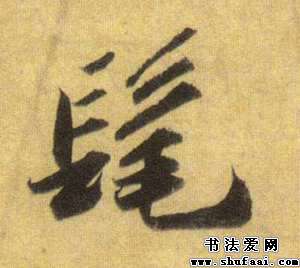 髦
书法爱网
www.shufaai.com